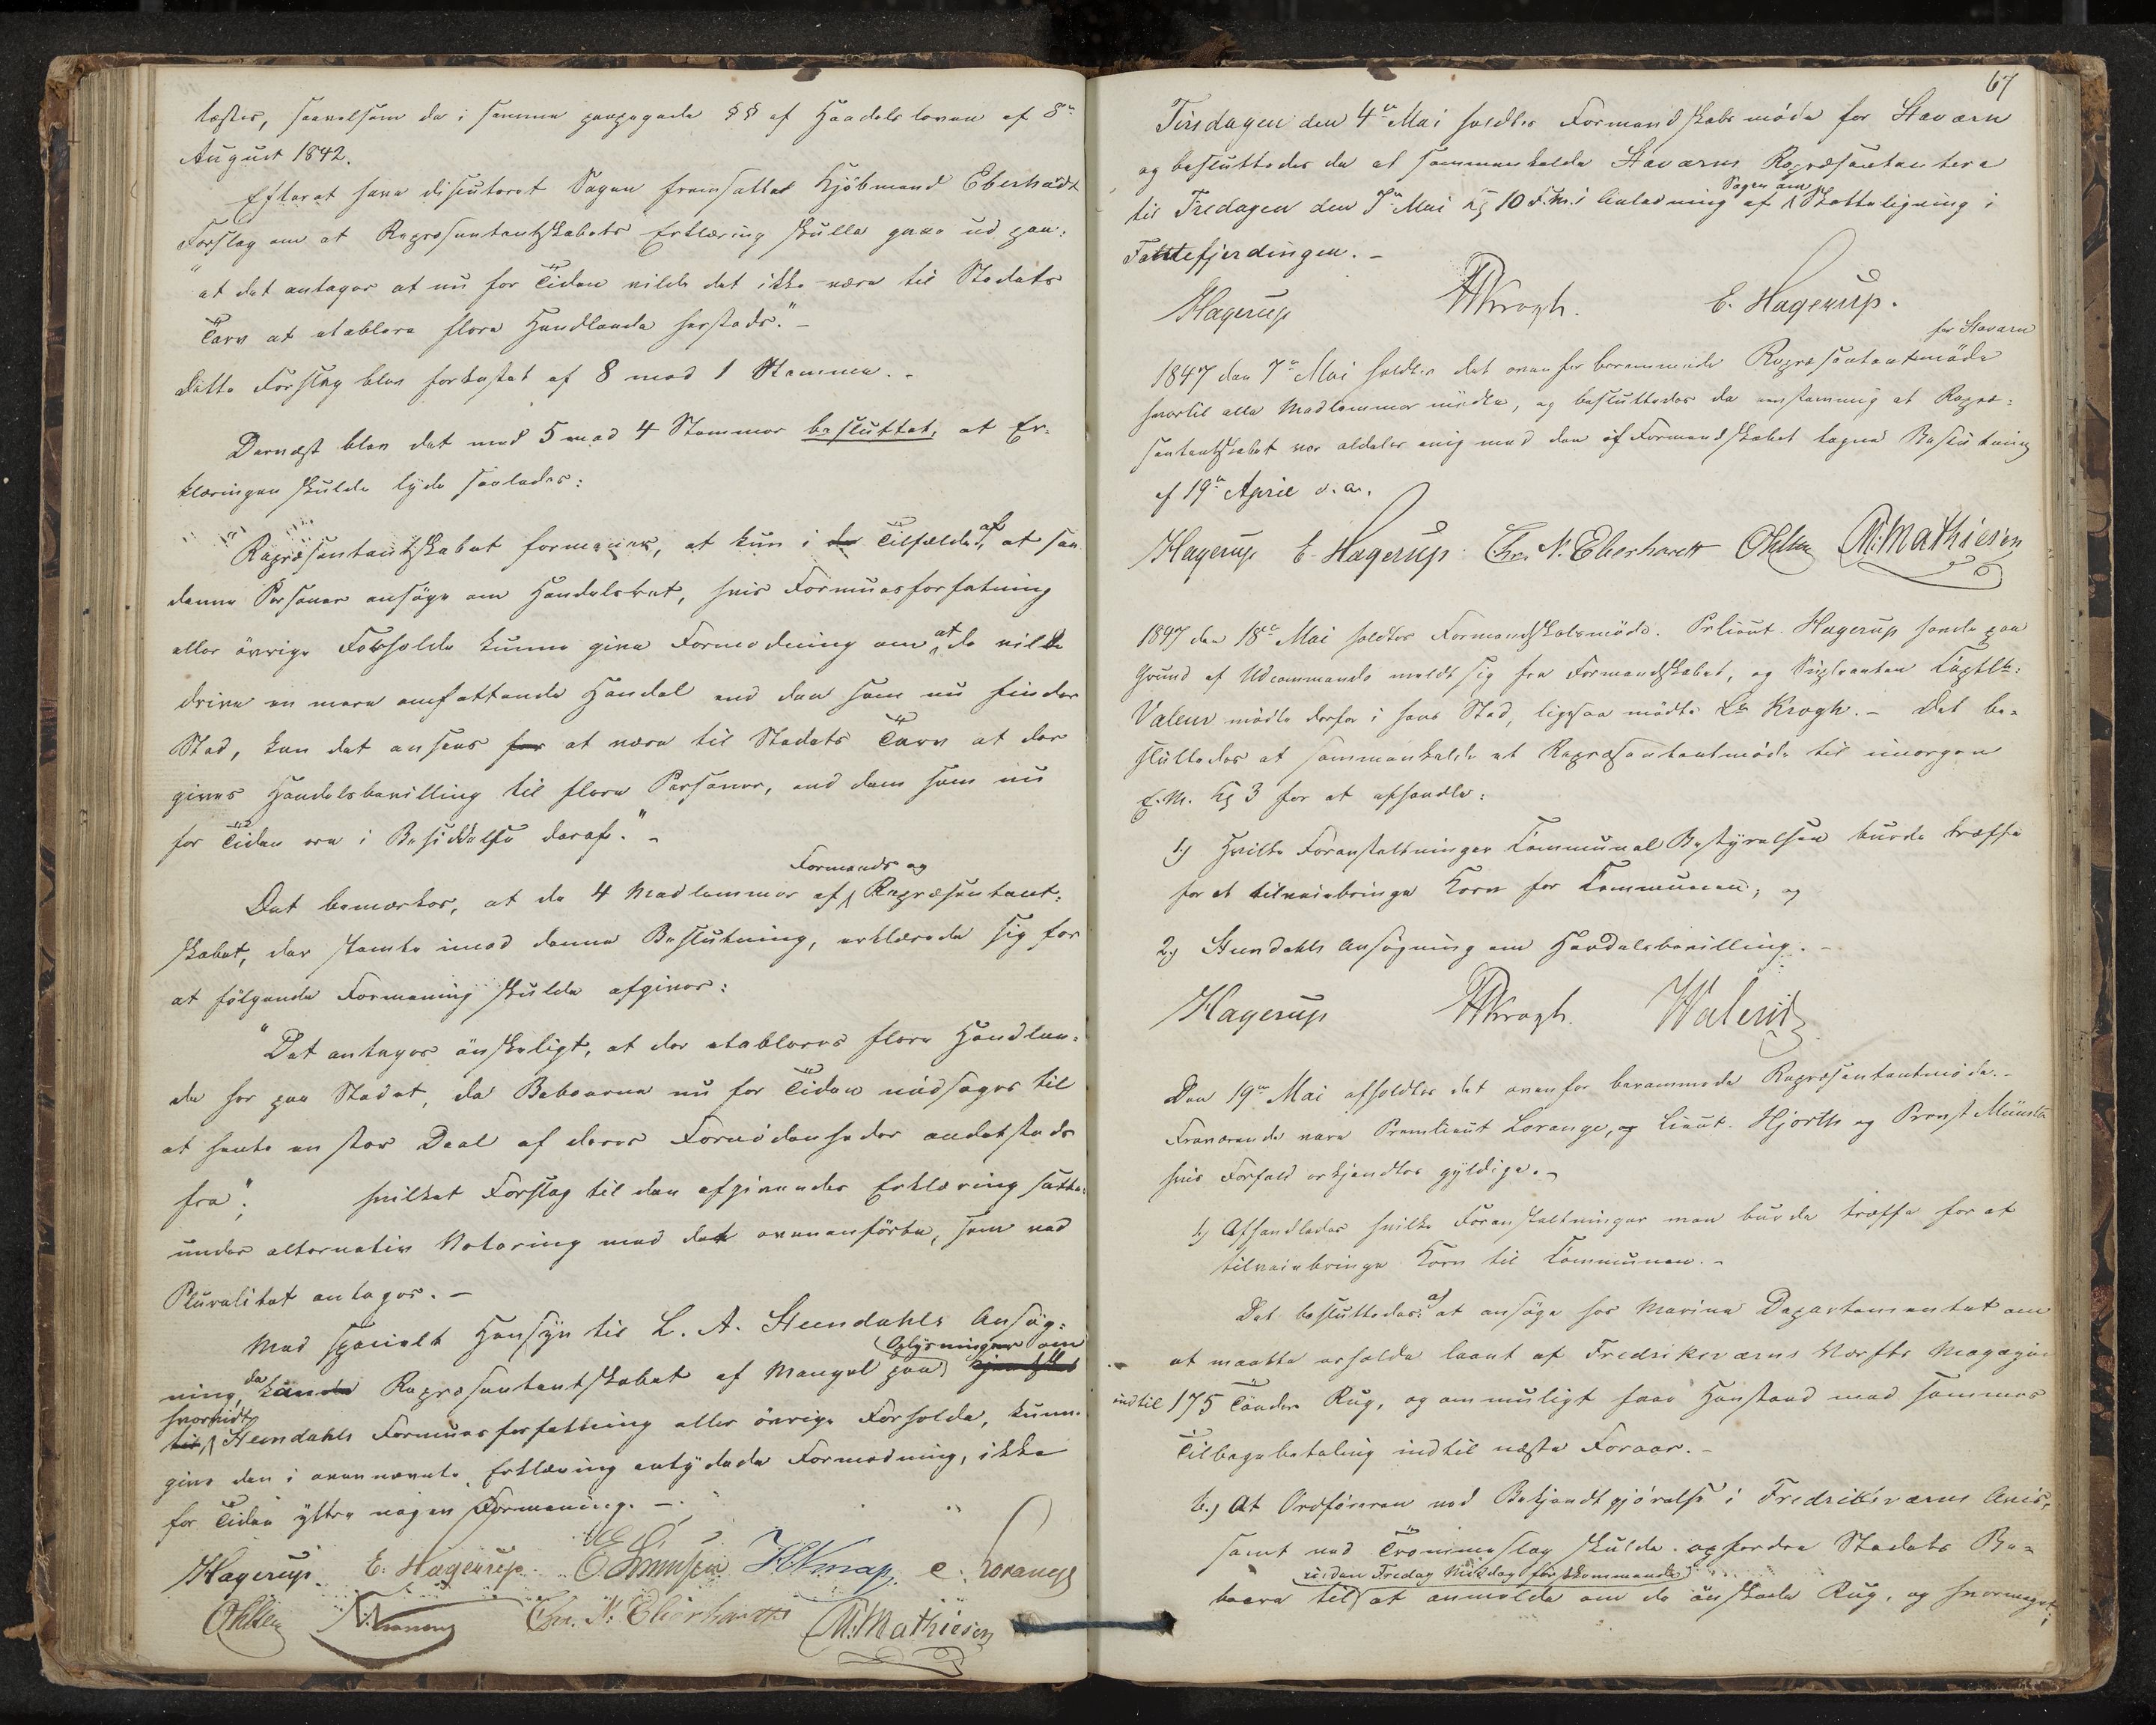 læstes, saavelsom de i samme paapegede §§ af Handelsloven af 8de
August 1842.
Efterat have discuteret Sagen fremsatte Kjöbmand Eberhardt
Forslag om at Repræsentantskabets Erklæring skulle gaae ud paa:
"at det antages at nu for Tiden vilde det ikke være til Stedets
Tarv at etablere flere Handlende hersteds." -
Dette Forslag blev forkastet af 8 mod 1 Stemme. -
Dernæst blev det med 5 mod 4 Stemmer besluttet, at Er-
klæringen skulde lyde saaledes:
"Repræsentantskabet formener, at kun i de Tilfælde af, at saa
danne Personer ansöge om Handelsret, hvis Formuesforfatning
eller övrige Forholde kunne give Formodning om at de vilde
drive en mere omfattende Handel end den som nu finder
Sted, kan det ansees for at være til Stedets Tarv at der
gives Handelsbevilling til flere Personer, end dem som nu
for Tiden ere i Besiddelse deraf." -
Formands og
Det bemærkes, at de 4 Medlemmer af Repræsentant-
skabet, der stemte imod denne Beslutning, erklærede sig for
at fölgende Formening skulde afgives:
"Det antages önskeligt, at der etableres flere Handlen-
de her paa Stedet, da Beboerne nu for Tiden nödsages til
at hente en stor Deel af deres Fornödenheder andetsteds
fra"; hvilket Forslag til den afgivendes Erklæring sattes
under alternativ Votering med det ovenanförte, som ved
Pluralitet antoges. -
Med specielt Hensyn til L. A. Steendahls Ansög-
Oplysninger om
ning, da kunde Repræsentantskabet af Mangel paa
hvorvidt
til Steendahls Formuesforfatning eller övrige Forholde, kunne
give den i ovennævnte Erklæring antydede Formodning, ikke
for Tiden yttre nogen Formening. -
Hagerup. E. Hagerup. E. Simonsen H. Knap. C. Lorange
Ohlsen Chr. N. Eberhardt M. Mathiesen
67
Tirsdagen den 4de Mai holdtes Formandskabsmöde for Staværn
og besluttedes da at sammenkalde Staværns Repræsentantere
Sagen om
til Fredagen den 7de Mai Kl 10 F.M. i Anledning af Skatteligning i
Tanlefjerdingen. -
Hagerup Krogh. E. Hagerup.
for Staværn
1847 den 7de Mai holdtes det ovenfor berammede Repræsentantmöde
hvortil alle Medlemmer mödte, og besluttedes da eenstemmig at Repræ-
sentantskabet var aldeles enig med den af Formandskabet tagne Beslutning
af 19de April d. a.
Hagerup E. Hagerup. Chr. N. Eberhardt Ohlsen M. Mathiesen
1847 den 18de Mai holdtes Formandskabsmöde. Prlieut. Hagerup havde paa
Grund af Udcommando meldt sig fra Formandskabet, og Supleanten Captlt:
Valeur mödte derfor i hans Sted, ligesaa mödte Lt. Krogh. - Det be-
sluttedes at sammenkalde et Repræsentantmöde til imorgen
E.M. Kl 3 for at afhandle:
1) Hvilke Foranstaltninger Communal Bestyrelsen burde træffe
for at tilveiebringe Korn for Communen; og
2) Steendahls Ansögning om Handelsbevilling. -
Hagerup Krogh. Valeur
Den 19de Mai afholdtes det ovenfor berammede Repræsentantmöde. -
Fraværende vare Premlieut Lorange, og Lieut. Hjorth og Provst Münster
hvis Forfald erkjendtes gyldige. -
1) Afhandledes hvilke Foranstaltninger man burde træffe for at
tilveiebringe Korn til Communen. -
Det besluttedes: a) at ansöge hos Marine Departementet om
at maatte erholde laant af Fredriksværns Værfts Magazin
indtil 175 Tönder Rug, og om muligt faae Henstand med sammes
Tilbagebetaling indtil næste Foraar. -
b.) At Ordföreren ved Bekjendtgjörelse i Fredriksværns Avis,
samt ved Trommeslag skulde opfordre Stedets Be-
inden Fredag Middag förstkommende
boere til at anmelde om de önskede Rug, og hvormeget,